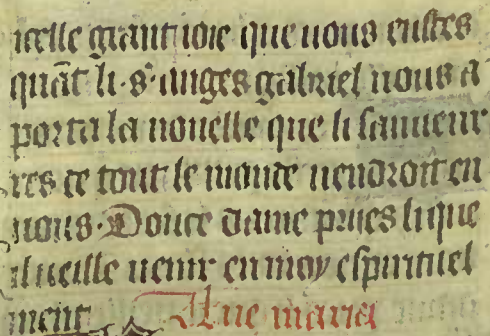 icelle grant ioie que uous eustes
quāt li .s. anges gabriel uous a
porta la nouelle que li sauueur
res de tout le monde uendroit en
uous. Douce dame pries li que
il ueille uenir en moy espirituel
ment. Aue maria